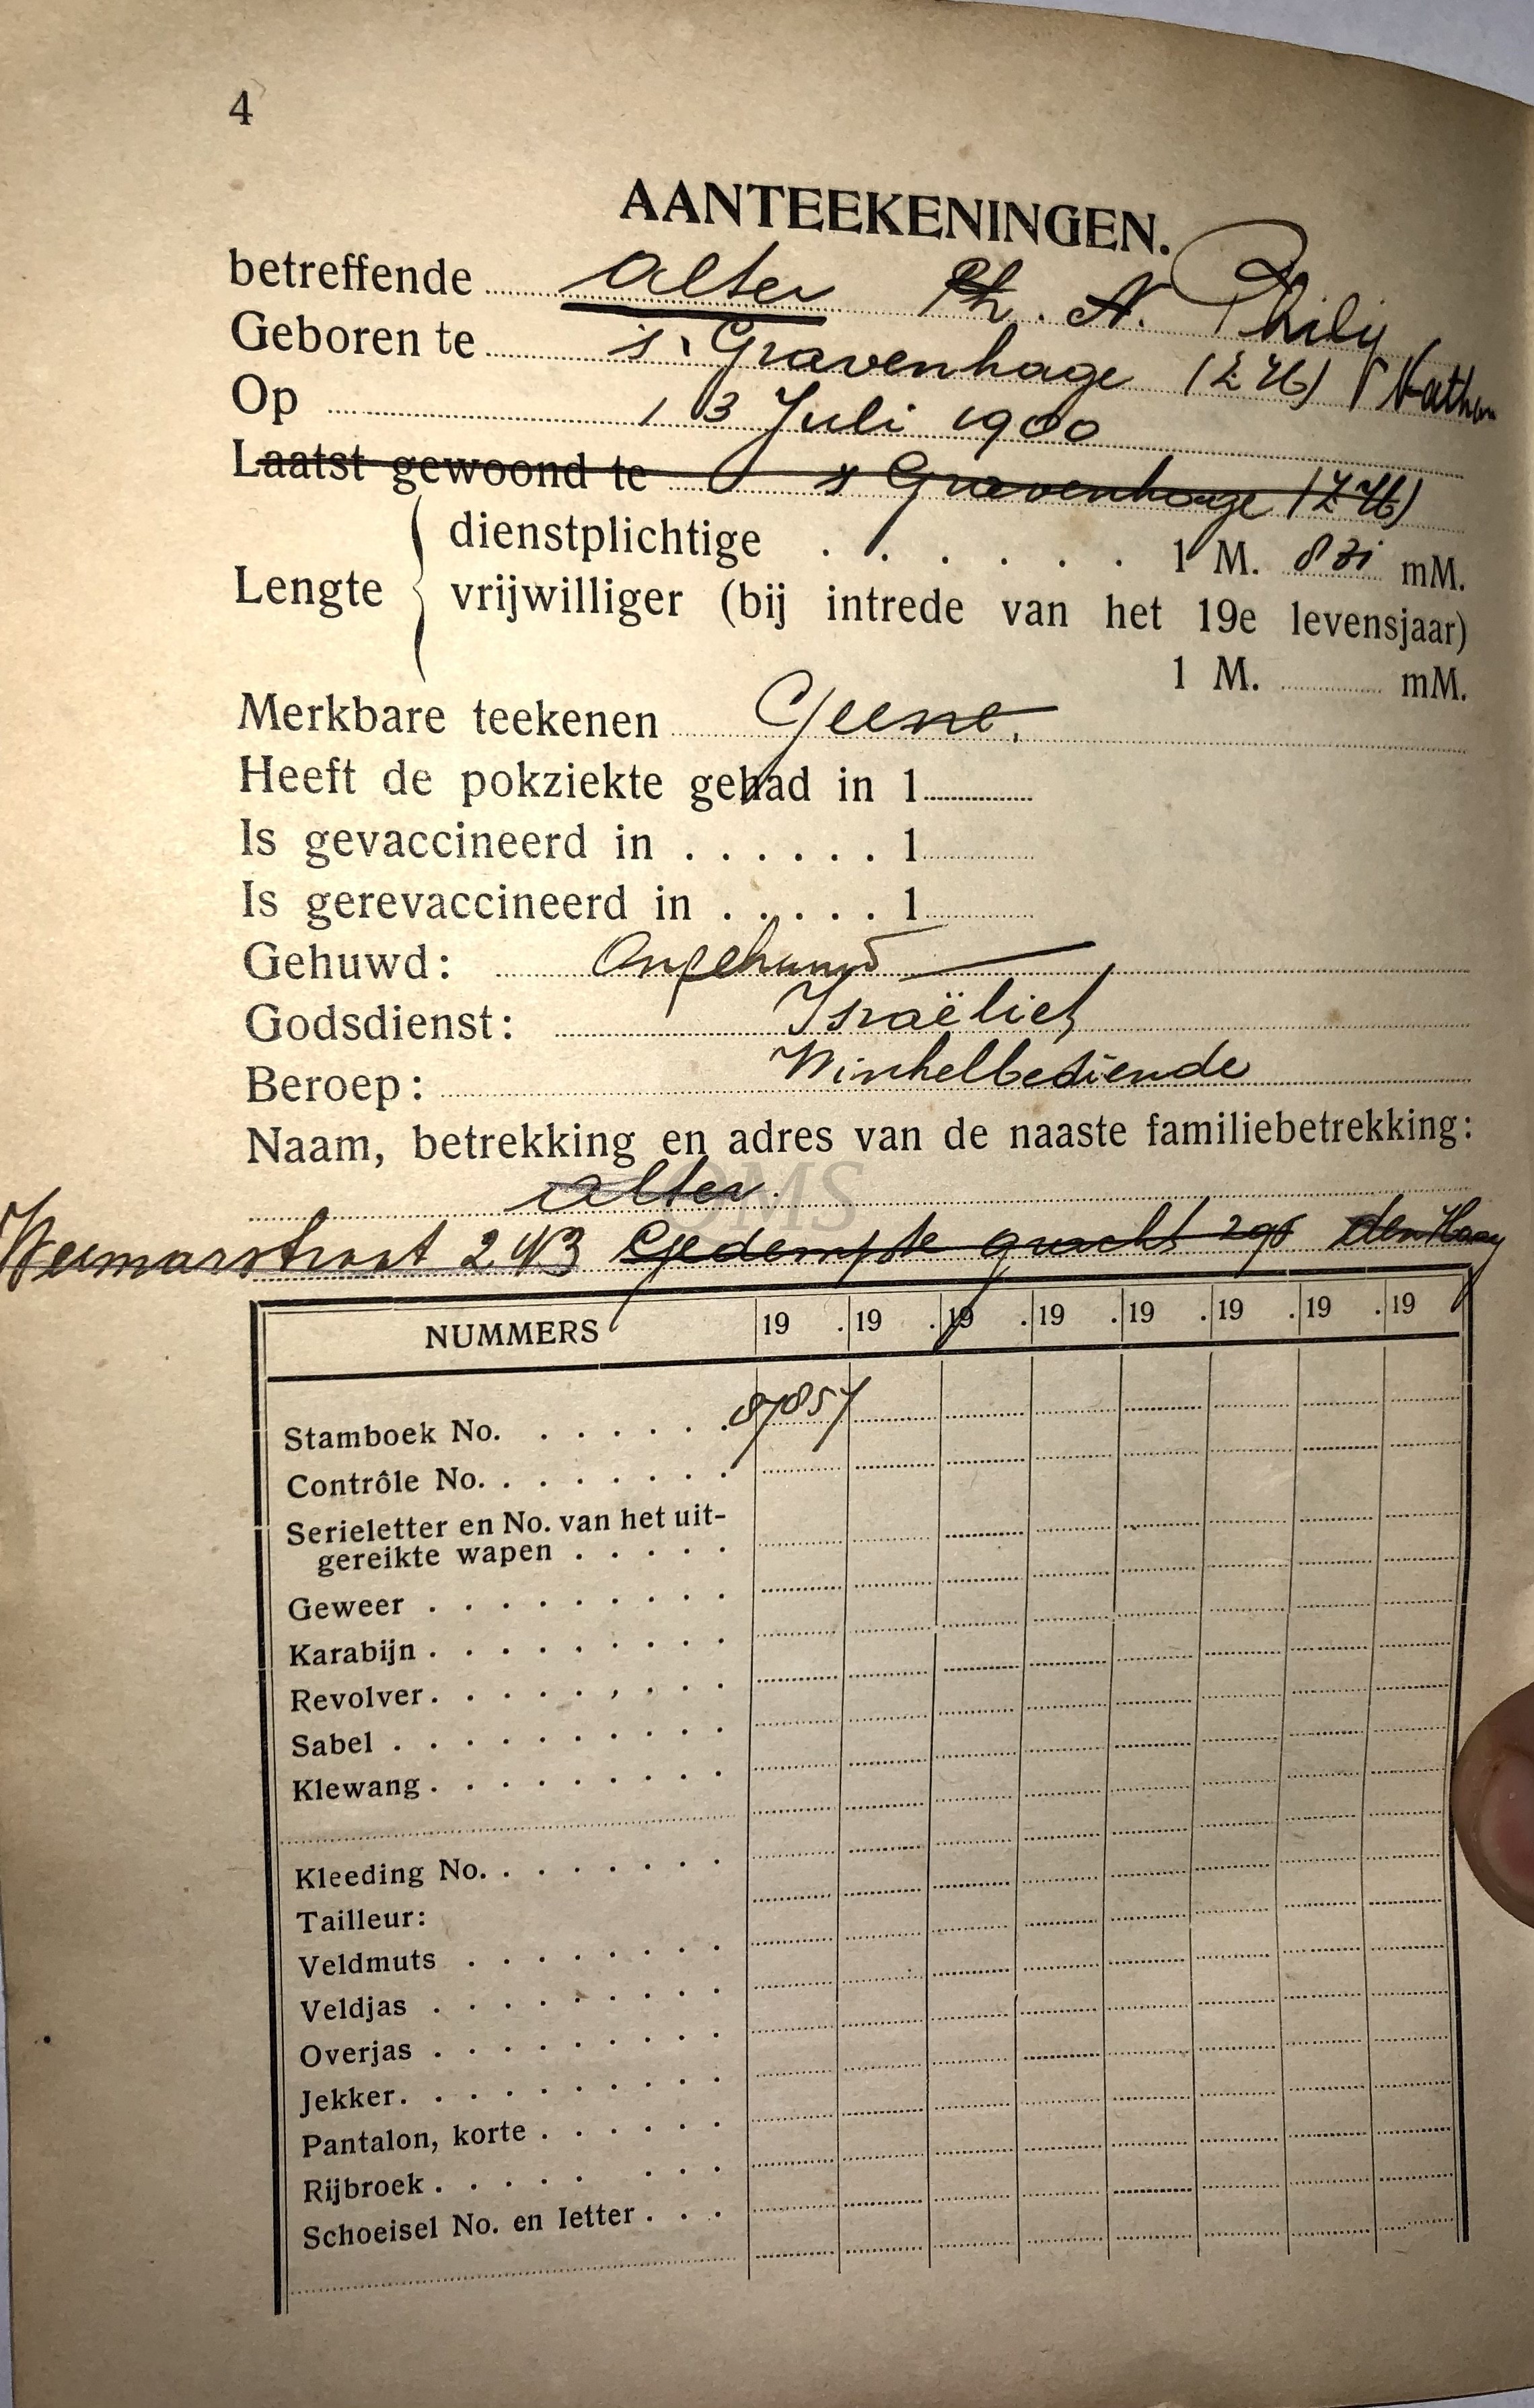 4
AANTEEKENINGEN.
betreffende Alter Ph. N. Philip
Geboren te 's Gravenhage (ZH) Nathan
Op 13 Juli 1900
Laatst gewoond te 's Gravenhage (ZH)
dienstplichtige . . . . . . 1 M. mM.
Lengte vrijwilliger (bij intrede van het 19e levensjaar)
1 M. mM.
Merkbare teekenen Geene.
Heeft de pokziekte gehad in 1
Is gevaccineerd in . . . . . . 1
Is gerevaccineerd in . . . . . 1
Gehuwd: Ongehuwd
Godsdienst: Israëliet
Beroep: Winkelbediende
Naam, betrekking en adres van de naaste familiebetrekking:
Alter.
QMS
Weimarstraat 243 Gedempte gracht den Haag
NUMMERS 19 . 19 . 19 . 19 . 19 . 19 . 19 . 19
Stamboek No. . . . . . . 87857
Contrôle No. . . . . . . .
Serieletter en No. van het uit-
gereikte wapen . . . . .
Geweer . . . . . . . . .
Karabijn . . . . . . . . .
Revolver . . . . . . . . .
Sabel . . . . . . . . . .
Klewang . . . . . . . . .
Kleeding No. . . . . . . .
Tailleur:
Veldmuts . . . . . . . .
Veldjas . . . . . . . . .
Overjas . . . . . . . . .
Jekker. . . . . . . . . .
Pantalon, korte . . . . . .
Rijbroek . . . . . . . .
Schoeisel No. en letter . . .